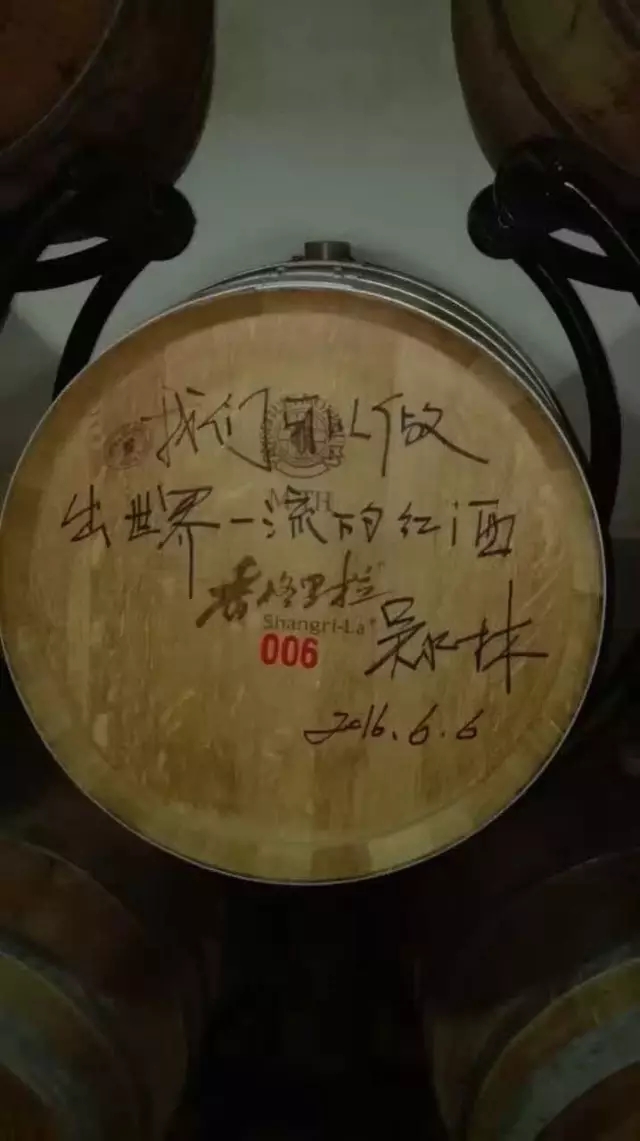 我们可以做
出世界一流的红酒
香格里拉
Shangri-La
006
2016.6.6